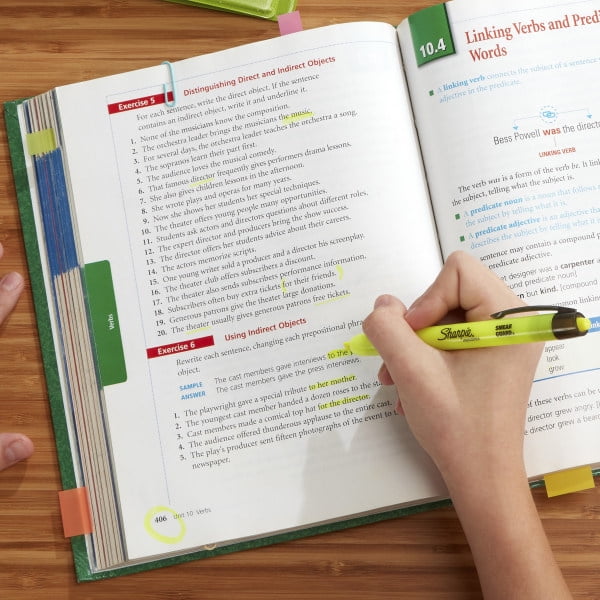 Exercise 5 Distinguishing Direct and Indirect Objects
For each sentence, write the direct object. If the sentence
contains an indirect object, write it and underline it.
1. None of the musicians know the composition.
2. The orchestra leader brings the musicians the music.
3. For several days, the orchestra leader teaches the orchestra a song.
4. The sopranos learn their part first.
5. The audience loves the musical comedy.
6. That famous director frequently gives performers drama lessons.
7. She also gives children lessons in the afternoon.
8. She wrote plays and operas for many years.
9. Now she shows her students her special techniques.
10. The theater offers young people many opportunities.
11. Students ask actors and directors questions about different roles.
12. The expert director and producers bring the show success.
13. The director offers her students advice about their careers.
14. The actors memorize scripts.
15. One young writer sold a producer and a director his screenplay.
16. The theater club offers subscribers a discount.
17. The theater also sends subscribers performance information.
18. Subscribers often buy extra tickets for their friends.
19. Generous patrons give the theater large donations.
20. The theater usually gives generous patrons free tickets.
Exercise 6 Using Indirect Objects
Rewrite each sentence, changing each prepositional phr
object.
SAMPLE The cast members gave interviews to the
ANSWER The cast members gave the press interviews.
1. The playwright gave a special tribute to her mother.
2. The youngest cast member handed a dozen roses to the
3. Cast members made a comical top hat for the director.
4. The audience offered thunderous applause to the entire cast.
5. The play's producer sent fifteen photographs of the event to
newspaper.
406 Unit 10 Verbs
Verbs
10.4 Linking Verbs and Predi
Words
A linking verb connects the subject of a sentence
adjective in the predicate.
Bess Powell was the directo
LINKING VERB
The verb was is a form of the verb be. It link
the subject, telling what the subject is.
A predicate noun is a noun that follows
the subject by telling what it is.
A predicate adjective is an adjective tha
describes the subject by telling what it
sentence may contain a compound
predicate adjective.
et designer was a carpenter
ound predicate noun]
n but kind. [Compound
ommon linking
appear
look
grow
of these verbs can be
director grew angry. [
director grew a bear
Sharpie
SMEAR
GUARD